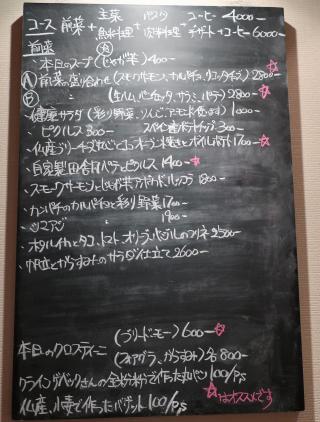 主菜 パスタ コーヒー 4000-
コース 前菜+魚料理+肉料理 デザート+コーヒー 6000-
前菜
・本日のスープ(じゃが芋) 400-
Ⓐ 前菜の盛り合わせ(スモークサーモン、カルパッチョ、 2800- ☆
Ⓑ 〃 (生ハム、パンチェッタ、サラミ、パテ) 2800- ☆
・健康サラダ(彩り野菜、りんご、アーモンド 1000-
・ピクルス 300- スペイン産ポテトチップ 300-
・仏産ブリーチーズ オーブン焼き ☆
・自家製田舎風パテとピクルス 1400- ☆
・スモークサーモンとじゃが芋、アボカド、ルッコラ 1800-
・カンパチのカルパッチョと彩り野菜 1700-
・シマアジ 〃 1900-
・ホタルイカとタコ、トマト、オリーブ、バジルのマリネ 2500-
・帆立とからすみのサラダ仕立て 2600-
本日のクロスティーニ
(ブリードモー) 600- ☆
(フォアグラ、からすみ) 各800-
クラインダイバックさんの全粒粉で作った丸パン 100/Ps
仏産、小麦で作ったバゲット 100/Ps
☆はオススメです